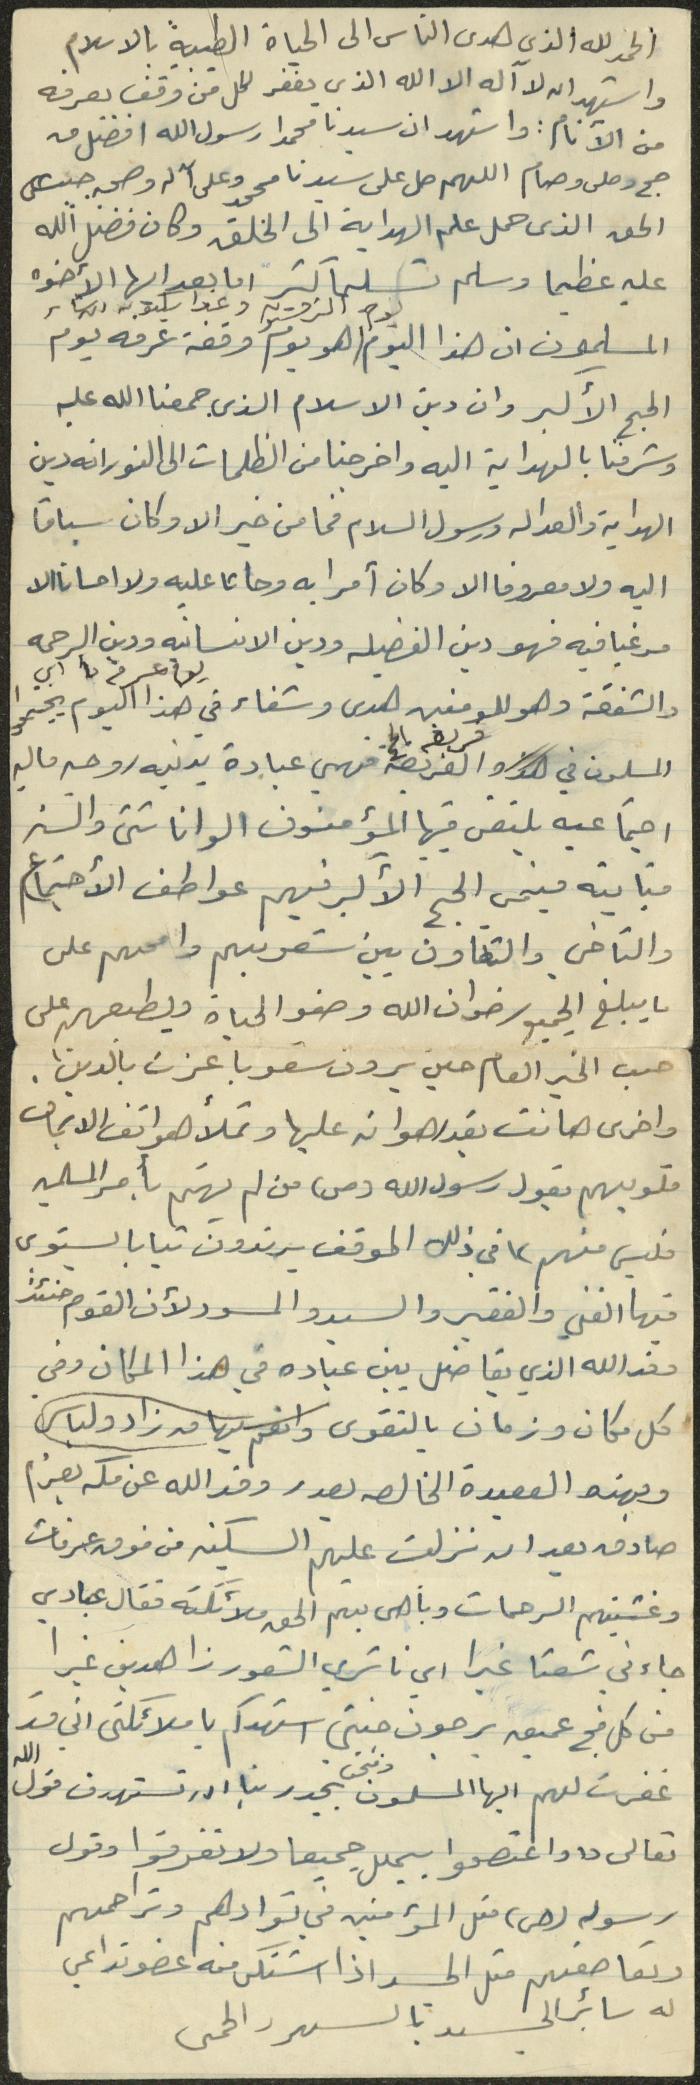 الحمد لله الذي هدى الناس الى الحياة الطيبة بالاسلام
واشهد ان لا آله الا الله الذي يغفر لكل من وقف بعرفه
من الأنام: واشهد ان سيدنا محمدا رسول الله افضل من
حج وصلى وصام اللهم صل على سيدنا محمد وعلى آله وصحبه
الحق الذى حمل علم الهداية الى الخلق وكان فضل الله
عليه عظيما وسلم تسليما كثيرا اما بعد ايها الأخوه
يوم الترويه وغدا سيكون
المسلمون ان هذا اليوم هو يوم وقفة عرفه يوم
الحج الأكبر وان دين الاسلام الذى جمعنا الله عليه
وشرفنا بالهداية اليه واخرجنا من الظلمات الى النور انه دين
الهداية والعداله ورسول السلام فما من خير الا وكان سباقا
اليه ولا معروفا الا وكان آمرا به وحاثا عليه ولا احسانا الا
مرغبا فيه فهو دين الفضيله ودين الانسانيه ودين الرحمه
يوم عرفه
والشفقة وهو للمؤمنين هدى وشفاء في هذا اليوم يجتمع
فريضة
المسلمون في هذه الفريضة فهي عبادة بدنيه روحيه ماليه
اجتماعيه يلتقى فيها المؤمنون الوانا شتى والسنه
متباينه فينمى الحج الأكبر فيهم عواطف الأجتماع
والتآخي والتعاون بين شعوبهم واممهم على
ما يبلغ الجميع رضوان الله وصفو الحياة ويطبعهم على
حب الخير العام حين يرون شعوبا عزت بالدين
واخرى هانت بقدر هوانه عليها وتملأ هواتف الايمان
قلوبهم بقول رسول الله (ص) من لم يهتم بأمر المسلمين
فليس منهم لأ في ذلك الموقف يرتدون ثيابا يستوى
فيها الغني والفقير والسيد والمسود لأن القوم حينئذ
وفد الله الذي يفاضل بين عباده في هذا المكان وفي
كل مكان وزمان بالتقوى وانعم بها من زاد ولباس
وبهذه العقيدة الخالصه يصدر وفد الله عن مكه بعزم
صادق بعد ان نزلت عليهم السكينه من فوق عرفات
وغشيتهم الرحمات وباهى بهم الحق ملآئكته فقال عبادي
جاءوني شعثا غبرا اي ناشري الشعور زاهدين غبرا
من كل فج عميق يرجون جنتي اشهدكم يا ملائكتى اني قد
غفرت لهم ايها المسلمون ونحن يجدر بنا ان نستهدف قول الله
تعالى (( واعتصموا بحبل جميعا ولا تفرقوا وقول
رسوله (ص) مثل المؤمنين في توادهم وتراحمهم
وتعاطفهم مثل الجسد اذا اشتكى منه عضو تداعى
له سائر الجسد بالسهر والحمى